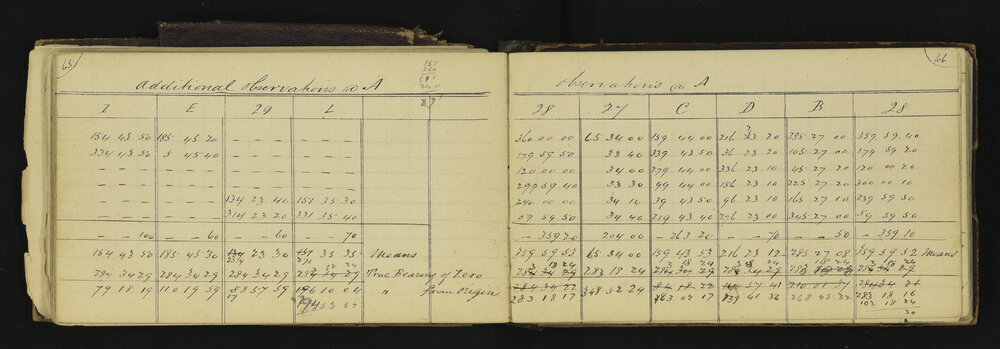 65
additional observations @ A
I E 29 L
154 43 50 185 45 20 – – – – – –
334 43 50 5 45 40 – – – – – –
– – – – – – – – – – – –
– – – – – – – – – – – –
– – – – – – 134 23 40 151 35 30
– – – – – – 314 23 20 331 35 40
– – 100 – – 60 – – 60 – – 70
154 43 50 185 45 30 23 30 35 35 Means
284 34 29 284 34 29 284 34 29 True Bearing of Zero
79 18 19 110 19 59 58 57 59 " from Origin
17
66
observations @ A
28 27 C D B 28
360 00 00 65 34 00 159 44 00 216 23 20 285 27 00 359 59 40
179 59 50 33 40 339 43 50 36 23 20 105 27 00 179 59 20
120 00 00 34 00 279 44 00 336 23 10 45 27 20 120 00 20
299 59 40 33 30 99 44 00 156 23 10 225 27 20 300 00 10
240 00 00 34 10 39 43 50 96 23 10 165 27 10 239 59 50
59 59 50 34 40 219 43 40 276 23 00 345 27 00 59 59 50
– 359 20 – 204 00 – 263 20 – – 70 – – 50 – 359 10
359 59 53 65 34 00 159 43 53 216 23 12 285 27 08 359 59 52 Means
283 18 24
348 52 24
283 18 17 83 02 17 139 41 36 268 45 32 283 18 16
103 18 24
30